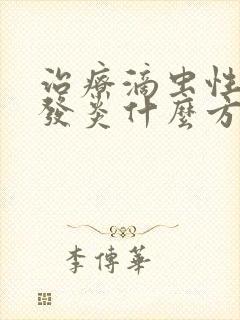 治療滴虫性
發炎什麼方
李傳華